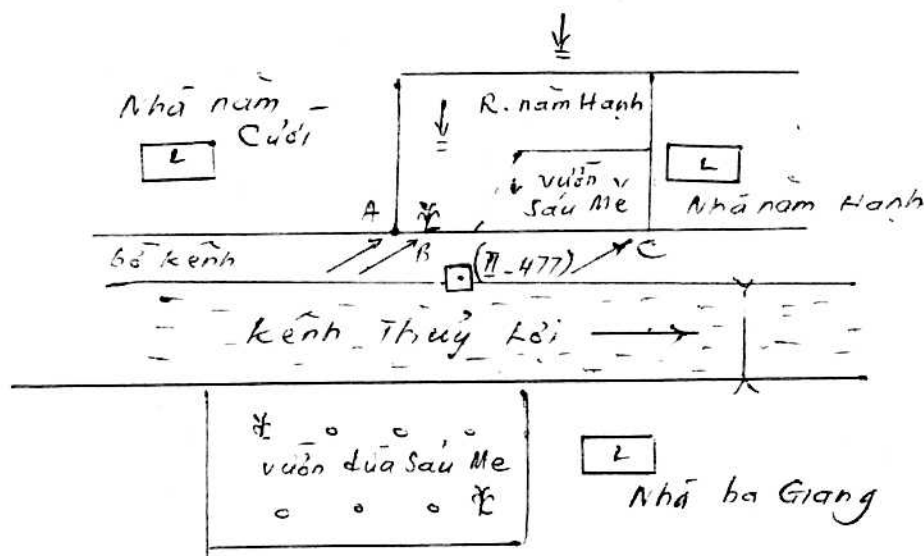 Nhà năm
Cưới
L
R. năm Hạnh
vườn
Sáu Mè
L
Nhà năm Hạnh
A
B
C
bờ kênh
(II_477)
Kênh Thuỷ Lợi
vườn dừa Sáu Me
L
Nhà ba Giang